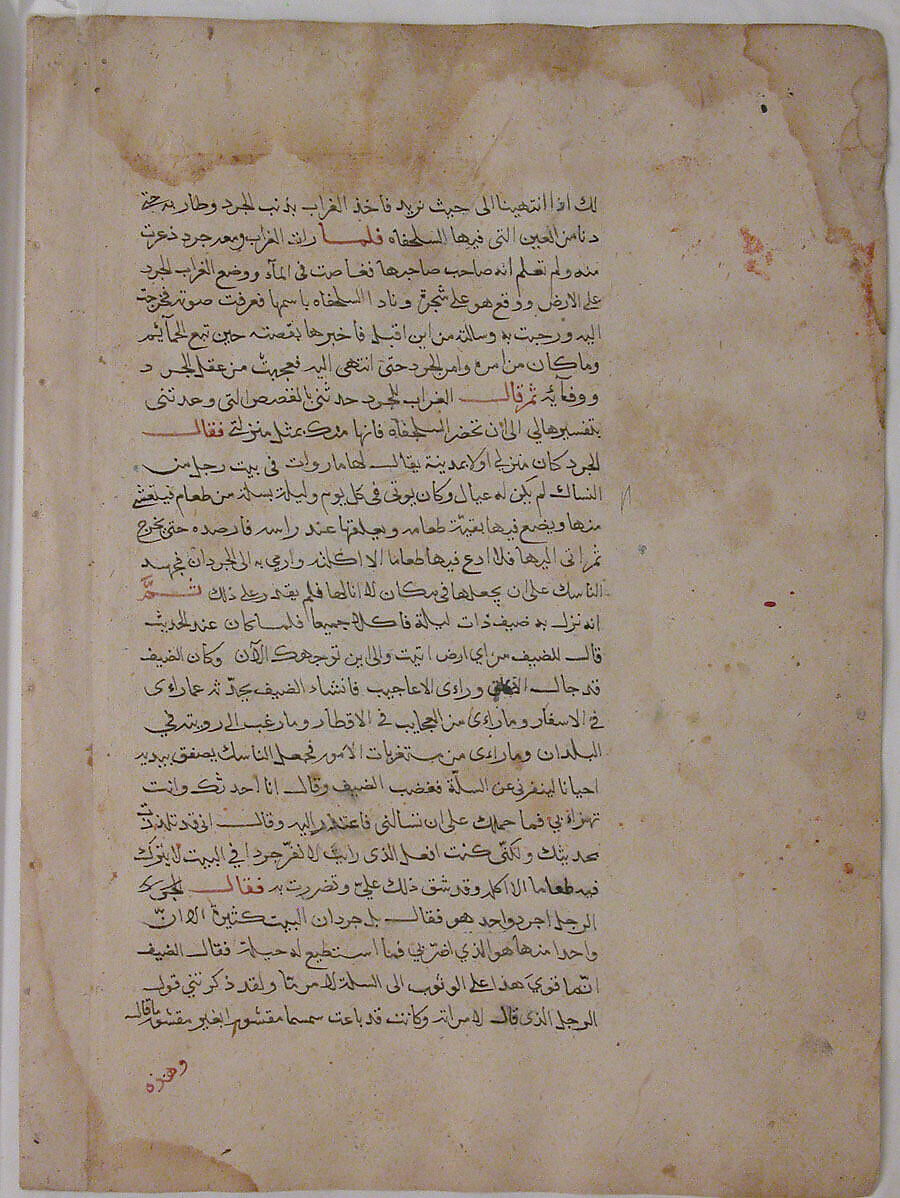 لك اذا انتهينا الى حيث نريد فاخذ الغراب بذنب الجرد وطار به حتى
دنا من العين التى فيها السلحفاه فلما رات الغراب ومعه جرد ذعرت
منه ولم تعلم انه صاحب صاحبها فغاصت فى المآء ووضع الغراب الجرد
على الارض ووقع هو على شجرة وناد السلحفاه باسمها فعرفت صوته فخرجت
اليه ورحبت به وسالته من اين اقبل فاخبرها بقصته حين تبع الحمآيم
وما كان من امره وامر الجرد حتى انتهى اليه فعجبت من عقل الجرد
ووفآيه ثم قال الغراب للجرد حدثنى بالقصص التى وعدتنى
بتفسيرها لي الى ان تحضر السلحفاه فانها منك بمثل منزلتي فقال
الجرد كان منزلي اولا بمدينة يقال لها ماروات فى بيت رجل من
النساك لم يكن له عيال وكان يوتى فى كل يوم وليلة بسلة من طعام فيتعشى
منها ويضع فيها بقية طعامه ويعلقها عند راسه فارصده حتى يخرج
ثم اتى اليها فلا ادع فيها طعاما الا اكلته وارمي به الى الجردان فجهد
الناسك على ان يجعلها في مكان لا انالها فلم يقدر على ذلك ثم
انه نزل به ضيف ذات ليلة فاكلا جميعا فلما كان عند الحديث
قال للضيف من اي ارض اتيت والى اين توجهك الآن وكان الضيف
قد جال وراءى الاعاجيب فانشاء الضيف يحدثه عما راءى
في الاسفار وما راءى من العجايب فى الاقطار وما رغب الى رويته في
البلدان وما راءى من مستغربات الامور فجعل الناسك يصفق بيديه
احيانا لينفرني عن السلة فغضب الضيف وقال انا احدثك وانت
تهزاء بي فما حملك على ان تسالنى فاعتذر اليه وقال انى قد تلذذت
بحديثك ولكنى كنت افعل الذى رايت لانفر جردا في البيت لا يترك
فيه طعاما الا اكله وقد شق ذلك علي وتضررت به فقال
الرجل اجرد واحد هو فقال بل جردان البيت كثيرة الا ان
واحدا منها هو الذي اضر بي فما استطيع له حيلة فقال الضيف
انما قوي هذا على الوثوب الى السلة لامر ما ولقد ذكرتنى قول
الرجل الذى قال لامراته وكانت قد باعت سمسما مقشورا بغير مقشور ما قال
وهذه